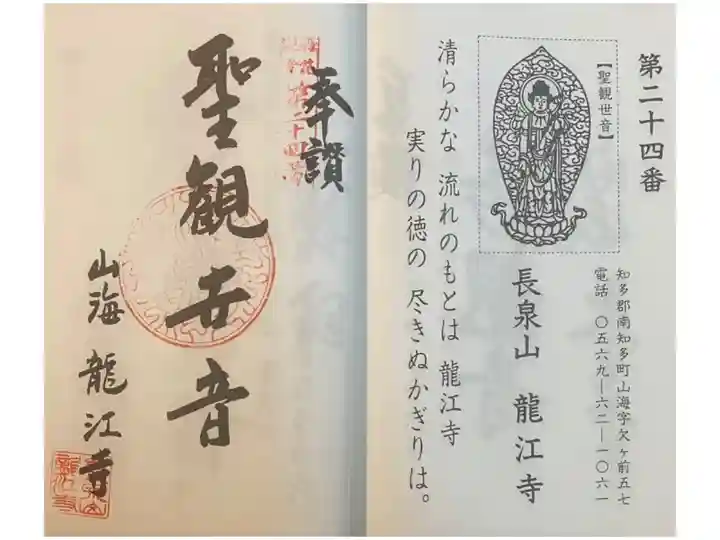 第二十四番
【聖観世音】
知多郡南知多町山海字欠ヶ前五七
電話 〇五六九―六二―一〇六一
長泉山 龍江寺
清らかな 流れのもとは 龍江寺
実りの徳の 尽きぬかぎりは。
奉讃
聖観世音
山海 龍江寺